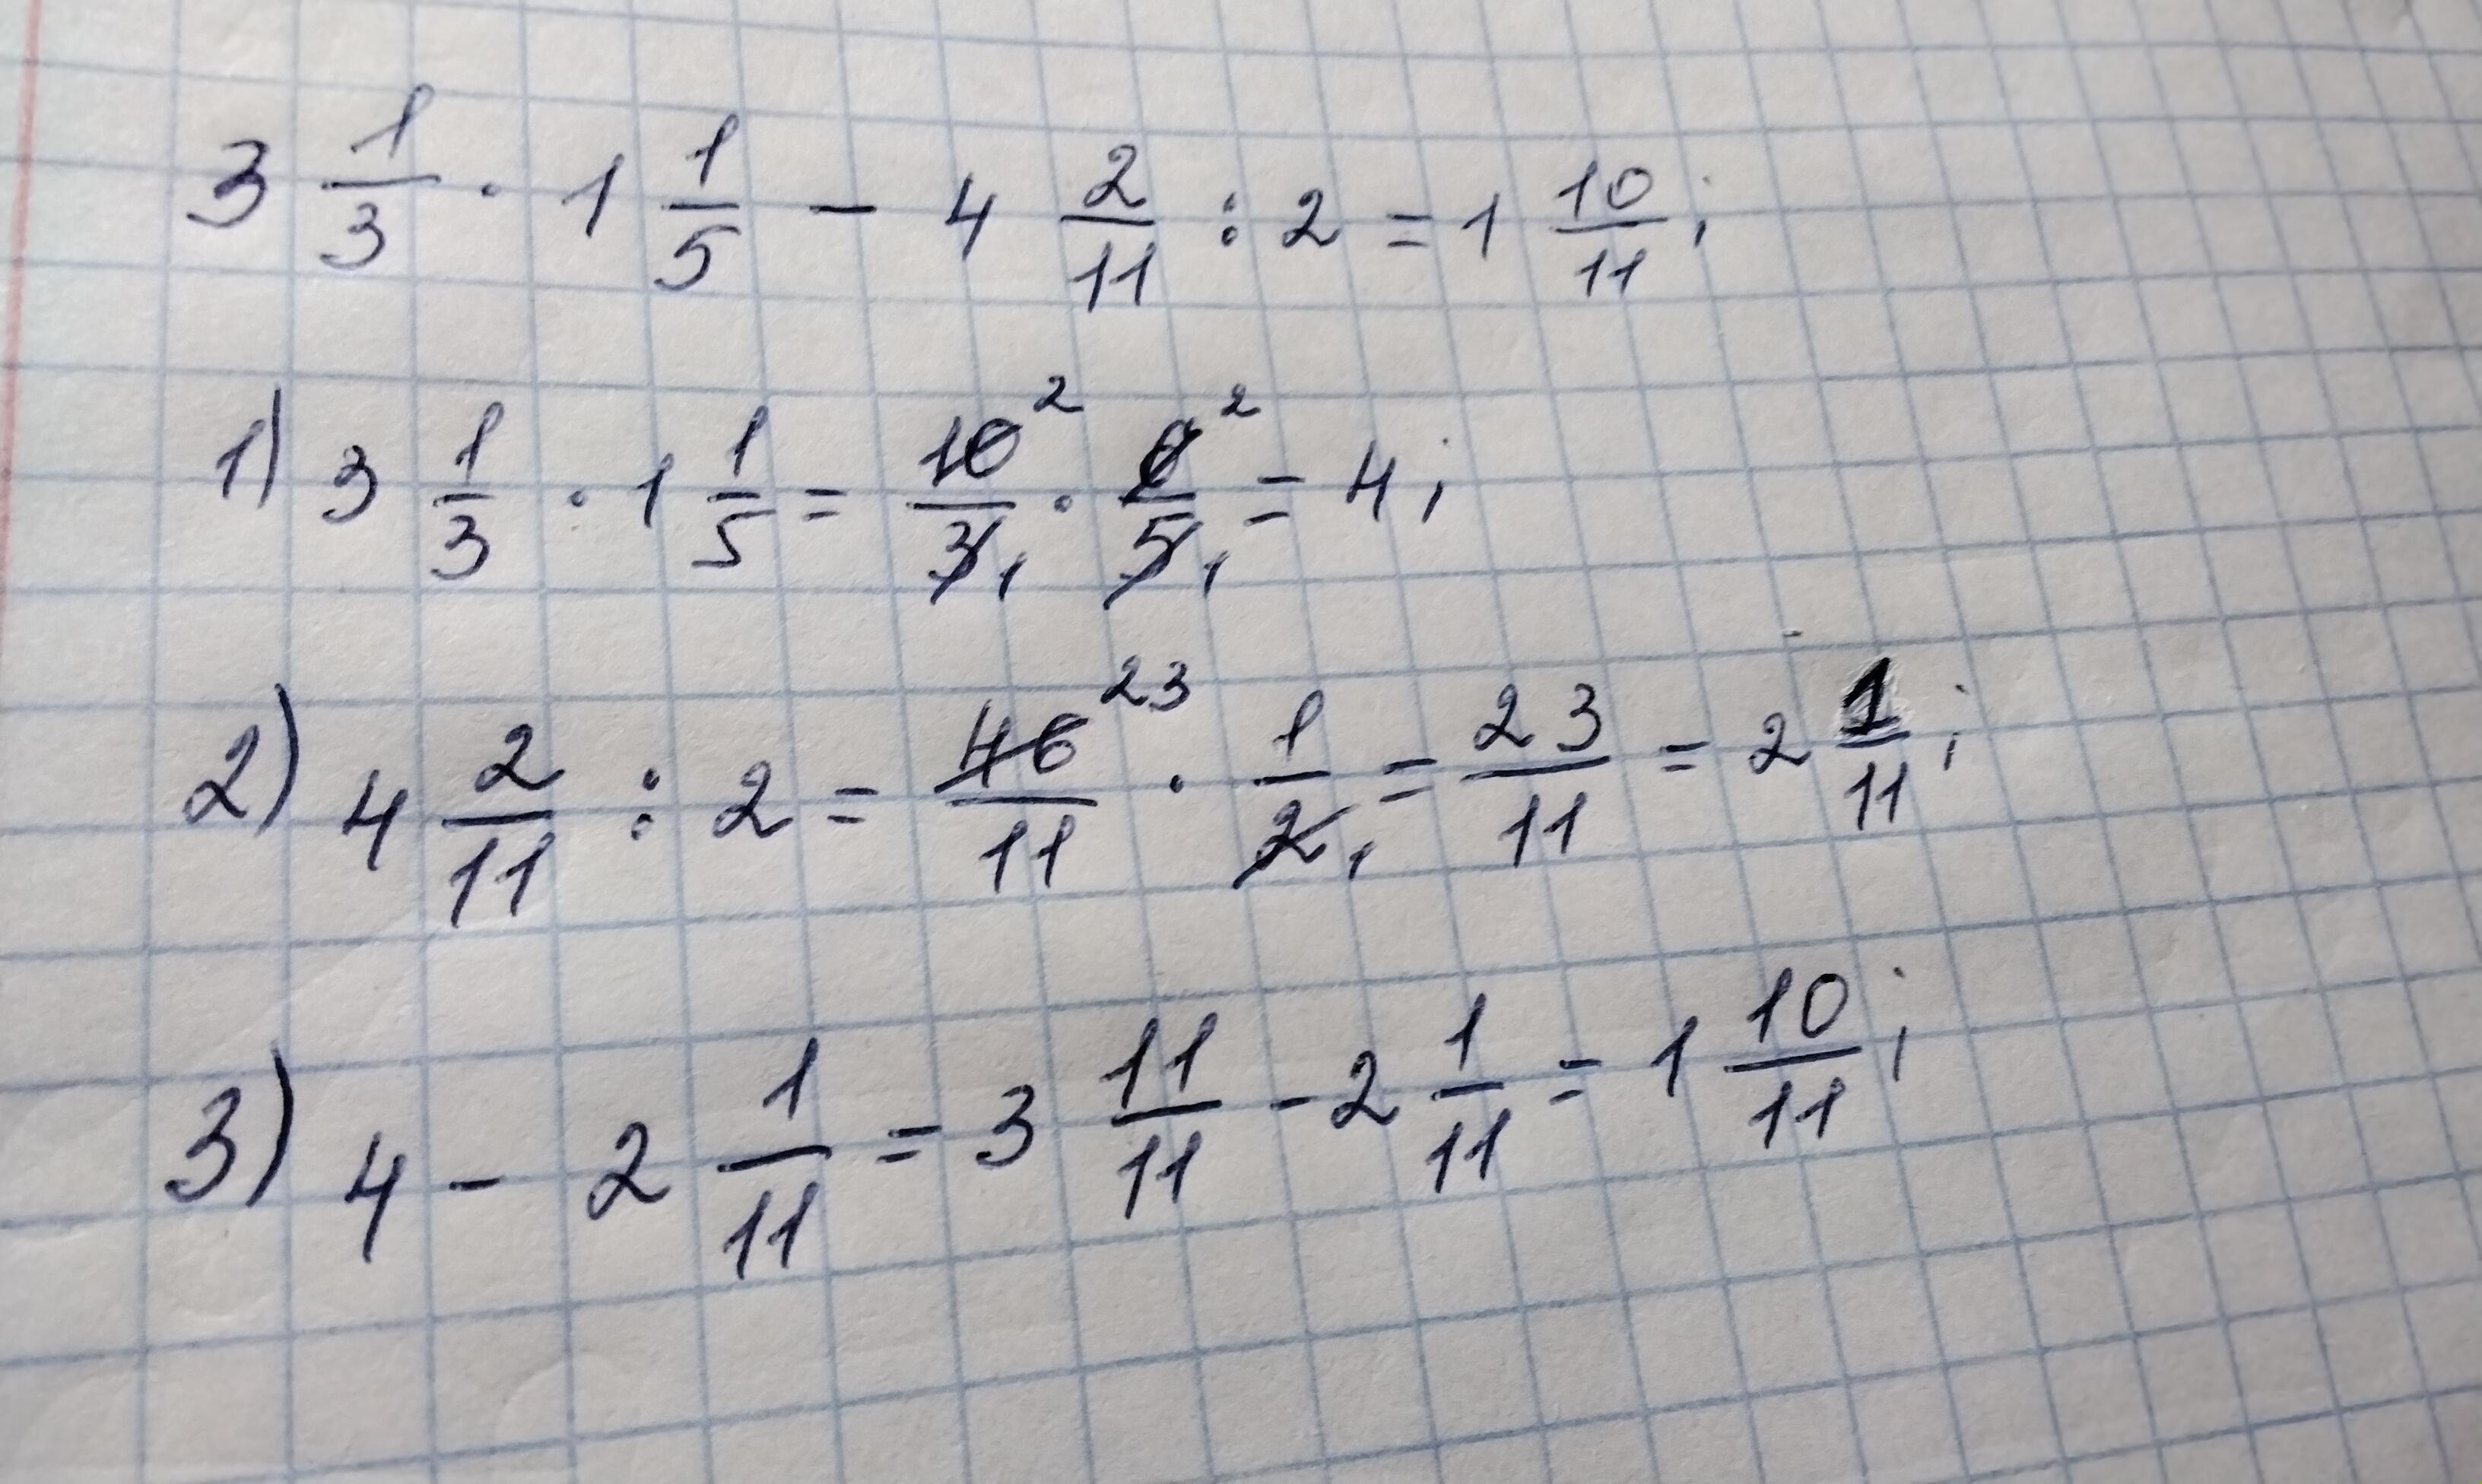 3 1/3 · 1 1/5 − 4 2/11 : 2 = 1 10/11;
1) 3 1/3 · 1 1/5 = 10²/3₁ · 6²/5₁ = 4;
2) 4 2/11 : 2 = 46²³/11 · 1/2₁ = 23/11 = 2 1/11;
3) 4 − 2 1/11 = 3 11/11 − 2 1/11 = 1 10/11;